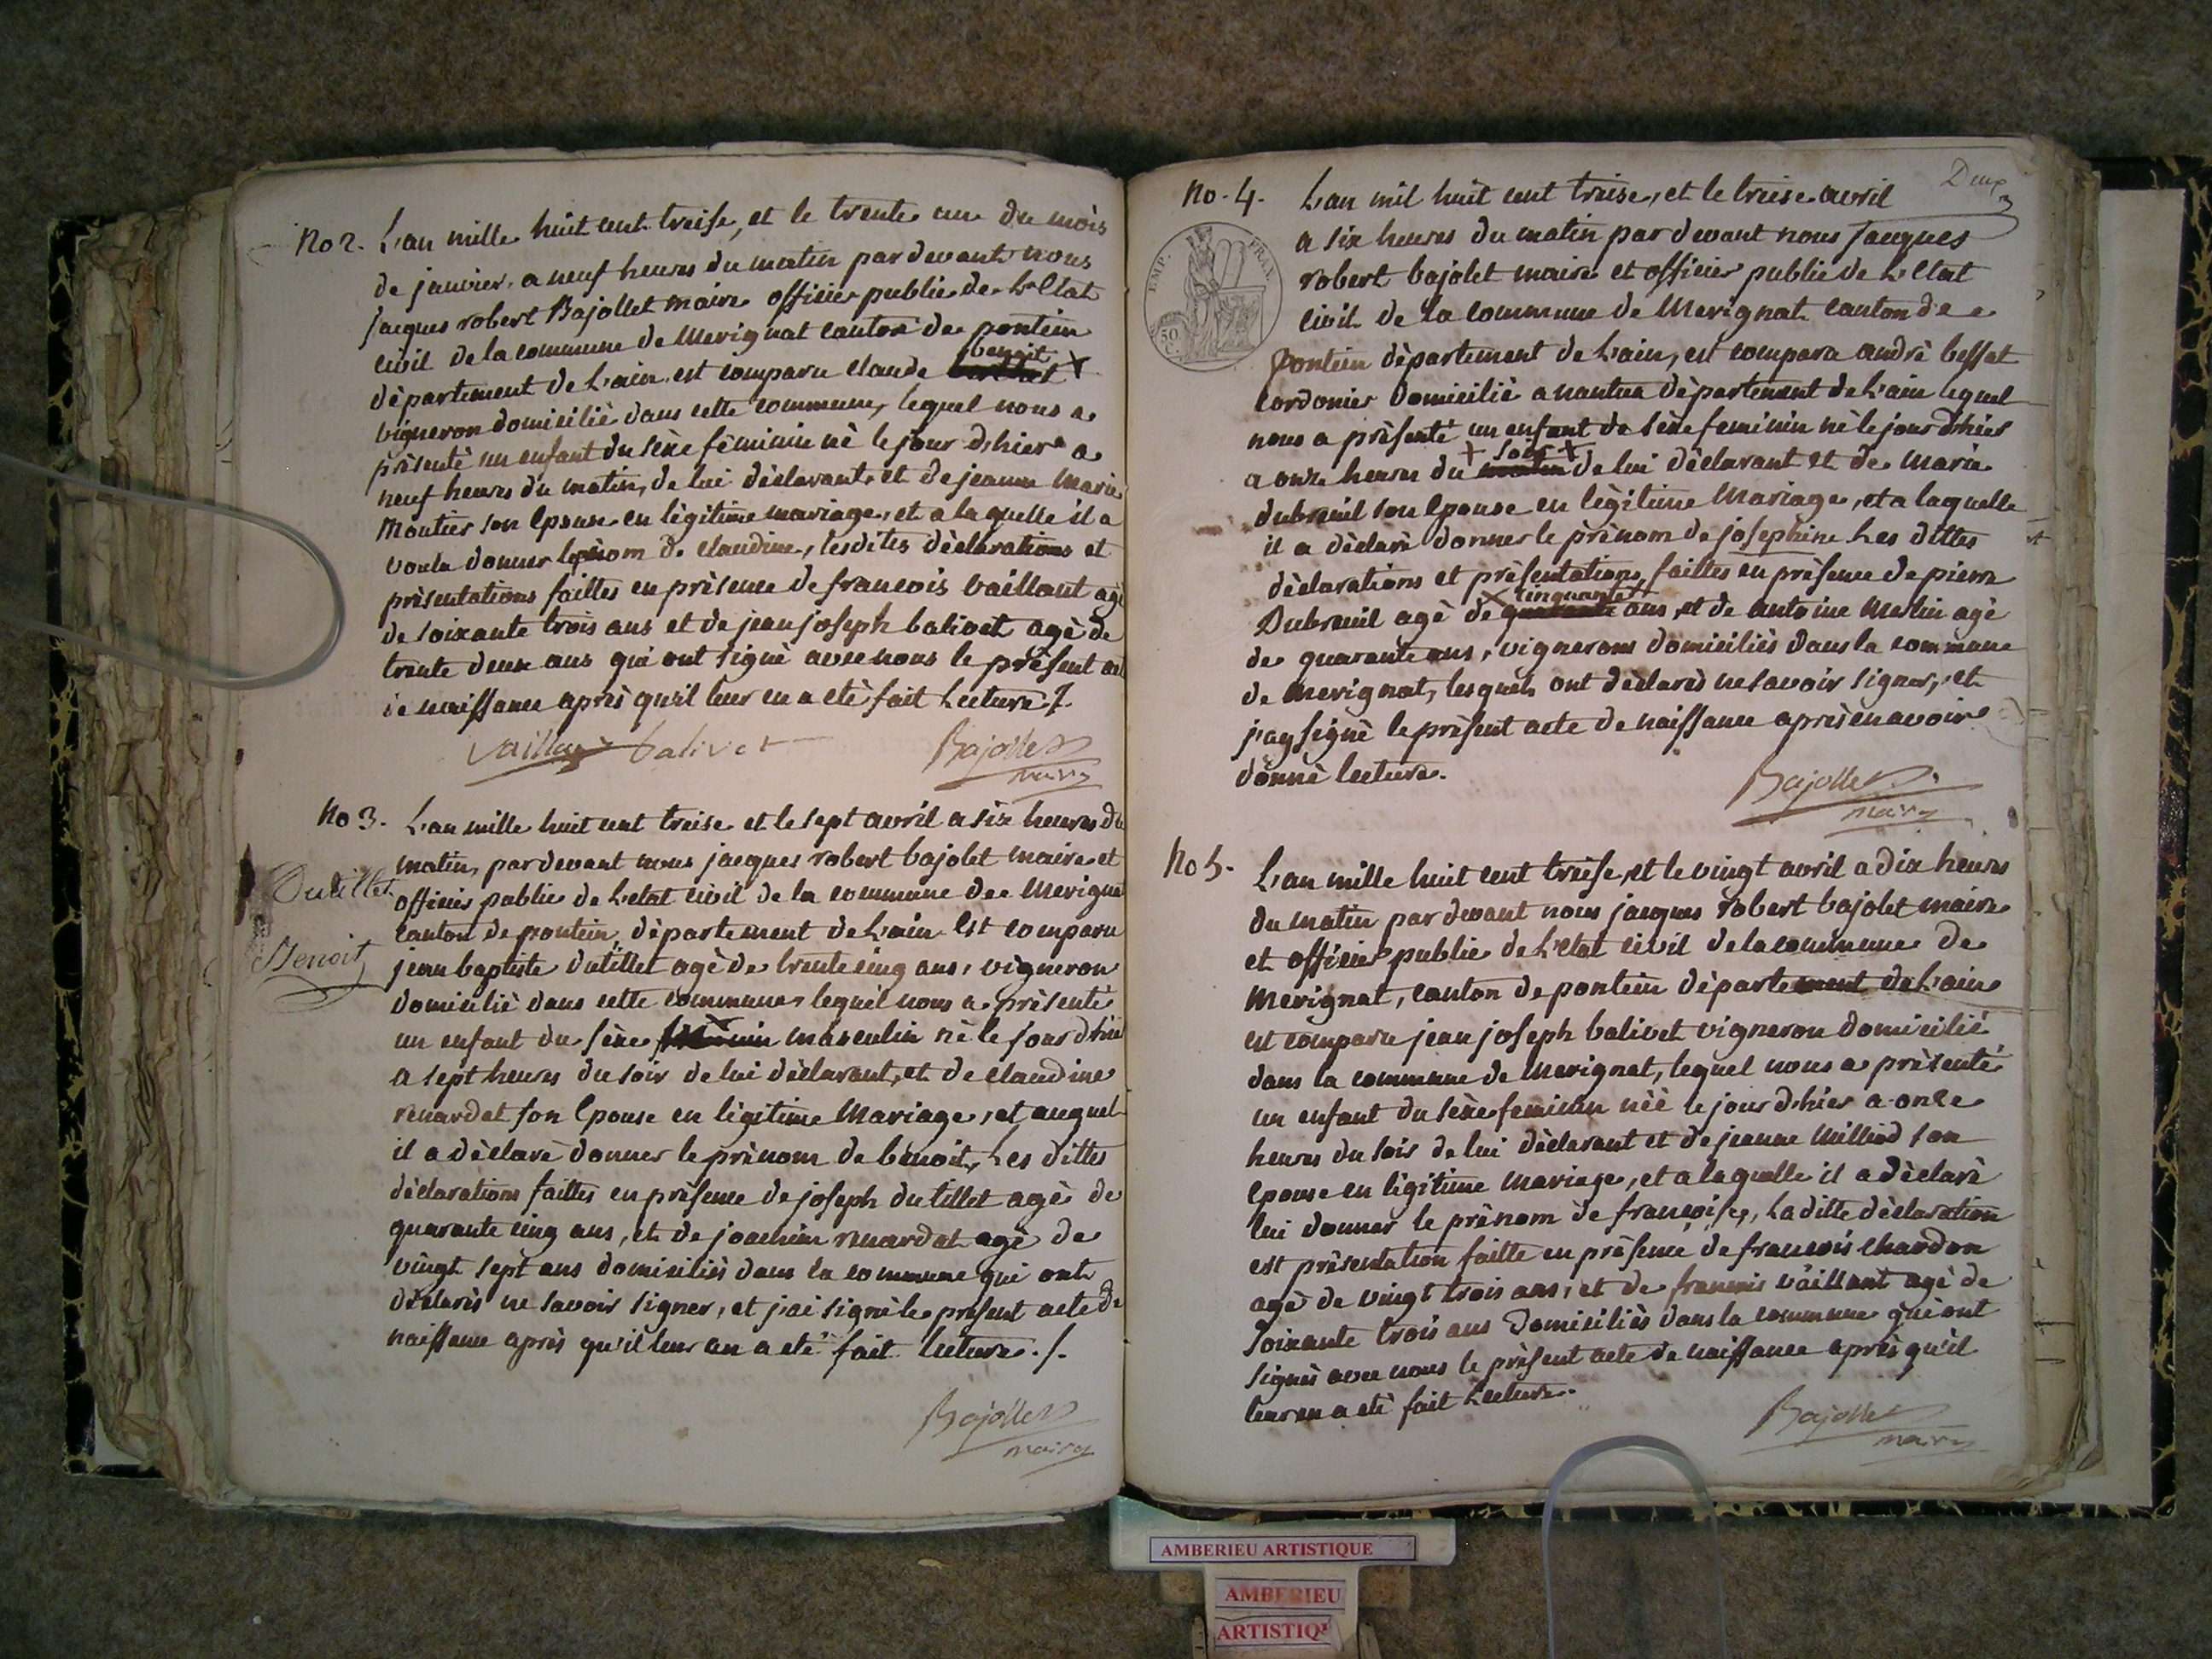 No 2. L'an mille huit cent treise, et le trente un du mois
de janvier, a neuf heures du matin pardevant nous
jacques robert Bajollet maire officier public de L'Etat
civil de la commune de Merignat canton de pontein
département de L'ain, est comparu claude benoit X
vigneron domicilié dans cette commune, lequel nous a
présenté un enfant du sèxe féminin nè le jour d'hier a
neuf heures du matin, de lui déclarant, et de jeanne Marie
Moutier son Epouse en lègitime mariage, et a laquelle il a
voulu donner le prènom de claudine, lesdites dèclarations et
prèsentations faittes en prèsence de francois vaillant agè
de soixante trois ans et de jean joseph balivet agè de
trente deux ans qui ont signè avec nous le prèsent act
de naissance après qu'il leur en a etè fait Lecture ./.
vaillant balivet Bajollet
maire
No 3. L'an mille huit cent treise et le sept avril a six heures du
matin, pardevant nous jacques robert bajolet maire et
officier public de L'etat civil de la commune de Merignat
canton de pontein, département de L'ain Est comparu
Dutillet
Benoit
jean baptiste dutillet agè de trente cinq ans, vigneron
domicilié dans cette commune, lequel nous a présentè
un enfant du sèxe fèminin masculin nè le jour d'hier
a sept heures du soir de lui dèclarant, et de claudine
renardat son Epouse en lègitime Mariage, et auquel
il a dèclarè donner le prènom de benoit, Les dittes
dèclarations faittes en prèsence de joseph dutillet agè de
quarante cinq ans, et de joachim renardat agè de
vingt sept ans domiciliès dans la commune qui ont
dèclarès ne savoir signer, et j'ai signè le prèsent acte de
naissance après qu'il leur en a etè fait lecture ./.
Bajollet
maire
Deux
No. 4. L'an mil huit cent treise, et le treise avril
a six heures du matin pardevant nous jacques
robert bajolet maire et officier public de L'Etat
civil de la commune de Merignat canton de
EMP. FRAN.
50
C.
pontein dèpartement de L'ain, est compara andrè bessat
cordonier domiciliè a nantua dèpartement de L'ain lequel
nous a prèsentè un enfant de sèxe feminin nè le jour d'hier
a onze heures du + soir + matin de lui dèclarant et de marie
dubreuil son Epouse en lègitime Mariage, et a laquelle
il a dèclarè donner le prènom de josephine Les dittes
dèclarations et prèsentations, faittes en prèsence de pierre
Dubreuil agè de X cinquante quarante ans, et de antoine Merlin agè
de quarante ans, vignerons domiciliès dans la commune
de Merignat, lesquels ont dèclarès ne savoir signer, et
j'ay signè le prèsent acte de naissance après en avoir
donnè lecture.
Bajollet
maire
No 5. L'an mille huit cent treise, et le vingt avril a dix heures
du matin pardevant nous jacques robert bajolet maire
et officier public de L'etat civil de la commune de
Merignat, canton de pontein dèpartement de L'ain
est comparu jean joseph balivet vigneron domiciliè
dans la commune de Merignat, lequel nous a prèsentè
un enfant du sèxe feminin nèè le jour d'hier a onze
heures du soir de lui dèclarant et de jeanne Milliod son
Epouse en lègitime mariage, et a laquelle il a dèclarè
lui donner le prènom de francoise, La ditte dèclaration
est prèsentation faitte en prèsence de francois chardon
agè de vingt trois ans, et de francois vaillant agè de
soixante trois ans domiciliès dans la commune qui ont
signès avec nous le prèsent acte de naissance après qu'il
leur en a etè fait Lecture.
Bajollet
maire
AMBERIEU ARTISTIQUE
AMBERIEU
ARTISTIQ